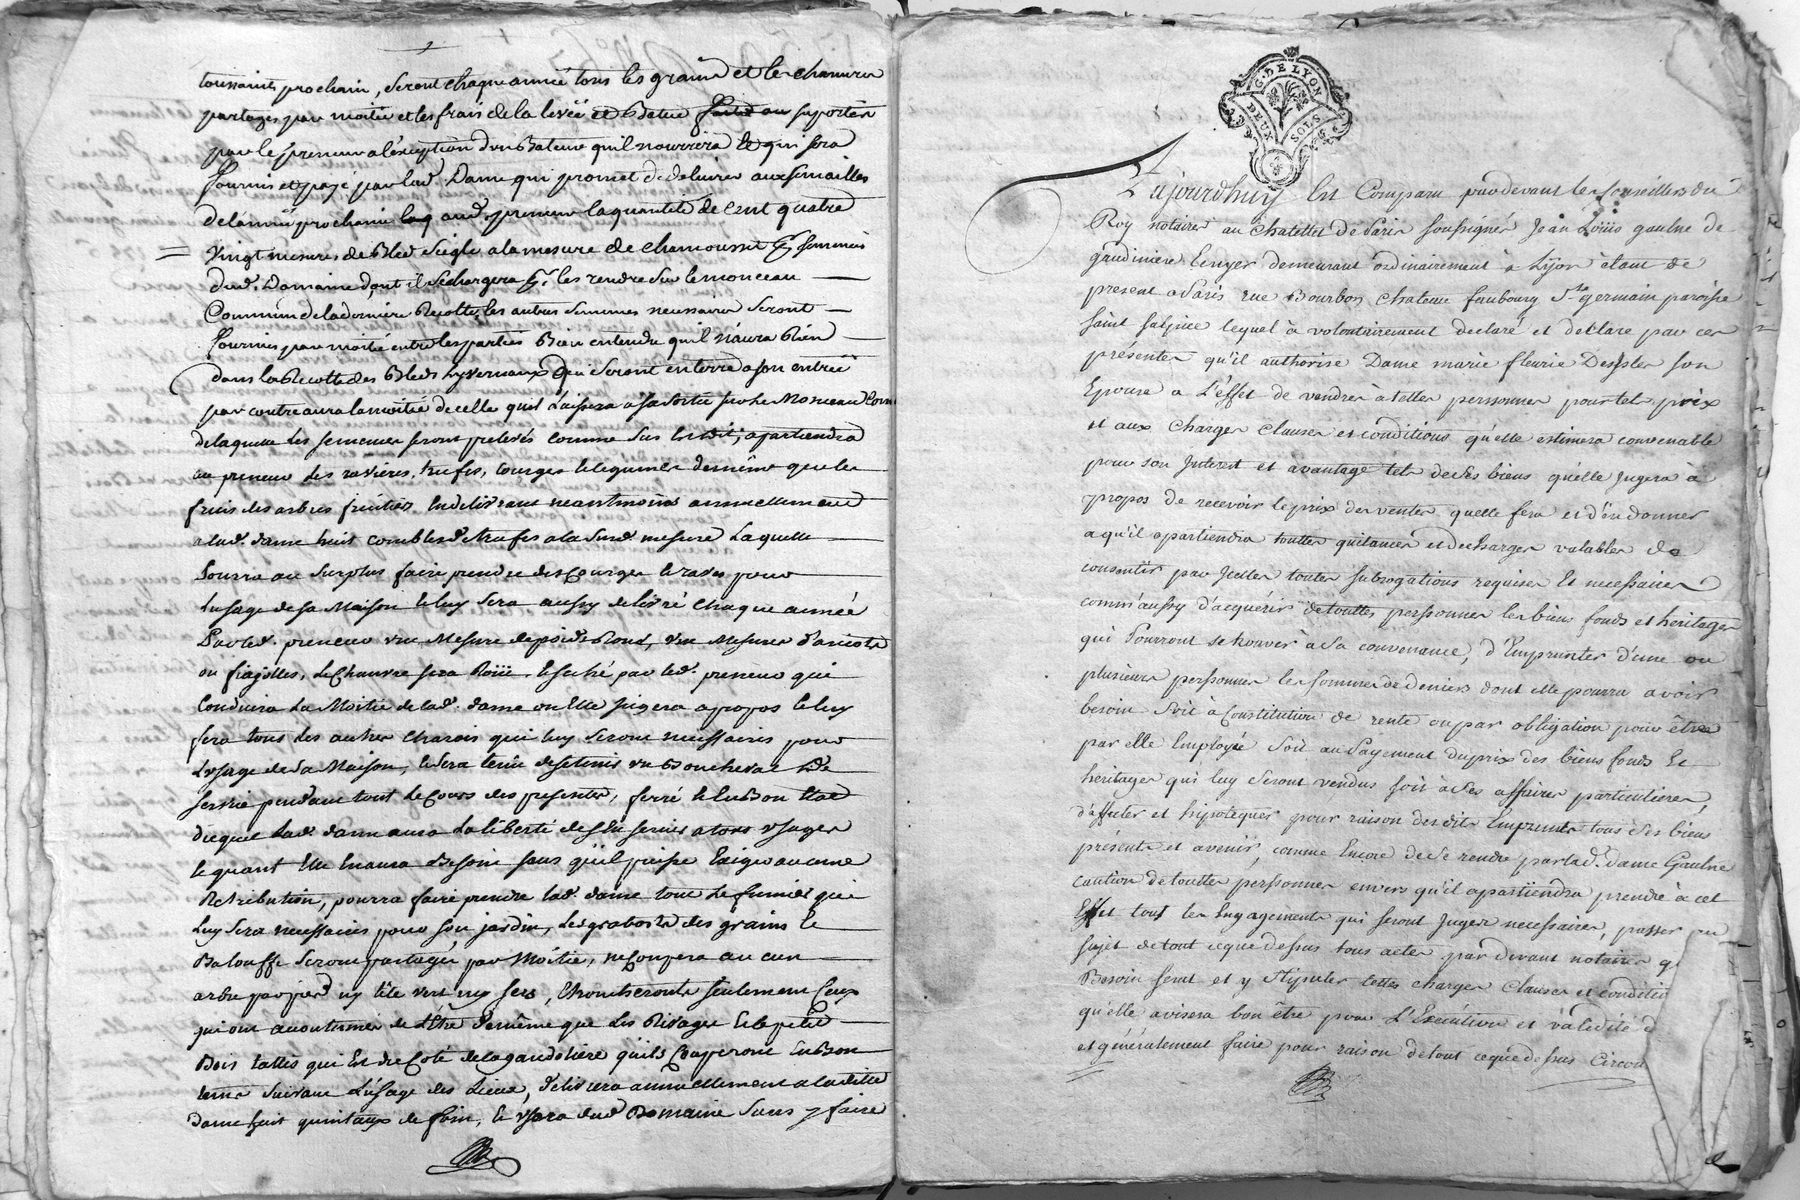 toussaints prochain, seront chaque année tous les grains et les chanvres
partagés par moitié et les frais de la levée et Batue suportés
par le preneur a l'exception d'un Bateur qu'il nourrira et qui sera
fournis et payé par lad. Dame qui promet de delivrer aux semailles
de l'année prochaine aud. preneur la quantité de cent quatre
vingt mesures de Bled seigle a la mesure de chamousset pr semences
dud. Domaine dont il se chargera pr les rendre sur le monceau
Commun de la derniere Recolte, les autres semences necessaires seront
fournies par moitié entre les parties Bien entendu qu'il n'aura Rien
dans la Recolte des Bleds hyvernaux qui seront en terre a son entrée
par contre aura la moitié de celle qu'il Laissera a sa sortie sur le Monceau Comun
de laquelle les semences seront prelevés comme sus est dit, apartiendra
au preneur les ravieres, trufes, courges et legumes de même que les
fruis des arbres fruitiers en delivrant neantmoins annuellement
a lad. dame huit combles de trufes a la susd. mesure Laquelle
Pourra au surplus faire prendre des Courges et raves pour
L'usage de sa Maison et luy sera aussy delivré chaque année
Par led. preneur une Mesure de pois Blond, une Mesure d'aricots
ou fiajolles, le Chanvre sera Roüi et seché par led. preneur qui
Conduira La Moitié de lad. dame ou Elle jugera a propos et luy
fera tous les autres charois qui luy seront necessaires pour
L'usage de sa Maison, et sera tenu de tenir un Bon cheval de
service pendant tout le Cours des presentes, ferré et en Bon Etat
duquel lad. dame aura La liberté de s'En servir a tous usages
et quant Elle En aura Besoin sans qu'il puisse Exiger aucune
Retribution, pourra faire prendre lad. dame tout le fumier qui
Luy sera necessaire pour son jardin, Les grabots des grains et
Balouffe seront partagés par Moitié, ne Coupera aucun
arbre par pied ny tête vert ny sec, Ebranchera seulement Ceux
qui ont acoutumés de L'Etre de même que Les Rivages et le petit
Bois taillis qui Est du Coté de la gandoliere qu'ils Couperont En Bon
tems suivant L'usage des Lieux, delivrera annuellement a la ditte
Dame huit quintaux de foin, et usera dud. Domaine sans y faire
G. DE LYON
DEUX SOLS
Aujourdhuy Est Comparu pardevant les Conseillers du
Roy notaires au Chatelet de Paris soussignés Jean Loüis gaulne de
gaudiniere Ecuyer demeurant ordinairement à Lyon étant de
present a Paris rue Bourbon chateau faubourg St. germain paroisse
saint sulpice lequel à volontairement declaré et declare par ces
présentes qu'il authorise Dame marie fleurie son
Epouse a L'effet de vendre à telles perssonnes pour tels prix
et aux charges clauses et conditions qu'elle estimera convenable
pour son Interest et avantage tels de ses biens qu'elle Jugera à
propos de recevoir le prix des ventes quelle fera et d'en donner
a qu'il apartiendra touttes quitances et decharges valables de
consentir par Jcelles toutes subrogations requises Et necessaires
comm'aussy d'acquérir de touttes perssonnes les biens fonds et heritages
qui Pourront se trouver à sa convenance, d'Emprunter d'une ou
plusieurs perssonnes les sommes de deniers dont elle pourra avoir
besoin soit à Constitution de rente ou par obligation pour être
par elle Employée soit au Payement du prix des biens fonds Et
heritages qui luy seront vendus soit à ses affaires particulieres,
d'affecter et hipotequer pour raison desdits Emprunts tous ses biens
présents et avenir, comme Encore de se rendre par lad. dame Gaulne
caution de touttes perssonnes envers qu'il apartiendra prendre à cet
Effet tout les Engagements qui seront Juges necessaires, passer au
sujet de tout ce que dessus tous actes par devant notaires
Besoin sera et y stipuler telles charges clauses et
qu'elle avisera bon être pour L'Execution et validité
et généralement faire pour raison de tout ce que dessus